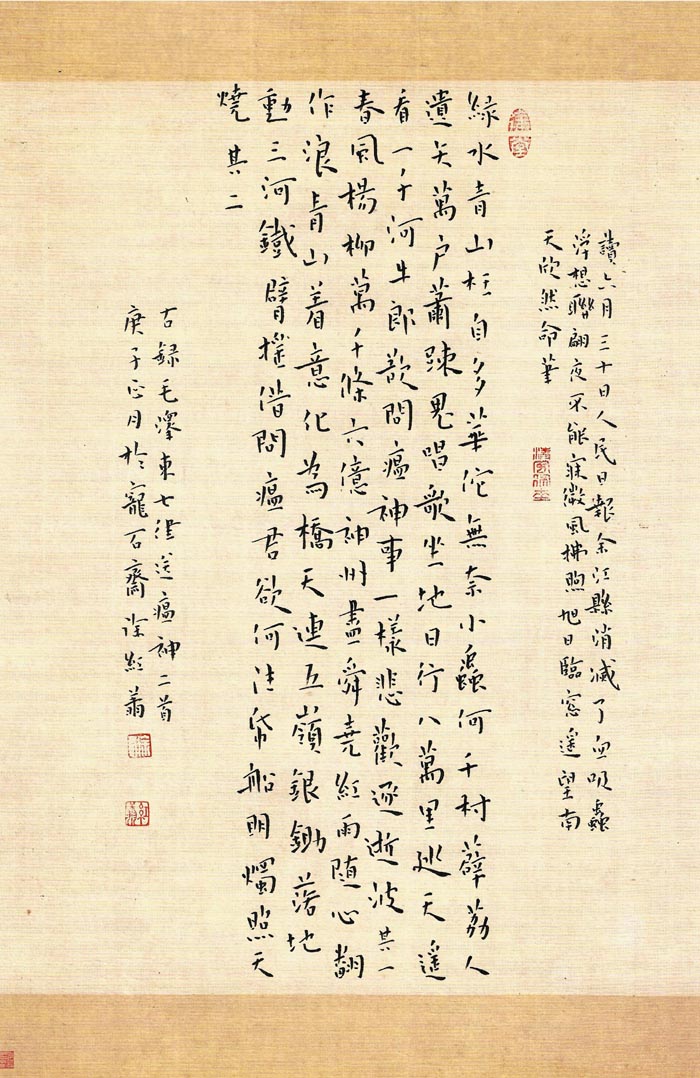 讀六月三十日人民日報余江縣消滅了血吸蟲
浮想聯翩夜不能寐微風拂煦旭日臨窗遥望南
天欣然命筆
緑水青山枉自多華佗無奈小蟲何千村薜荔人
遺矢萬户蕭踈鬼唱歌坐地日行八萬里巡天遥
看一千河牛郎欲問瘟神事一樣悲歡逐逝波其一
春風楊柳萬千條六億神州盡舜堯紅雨随心翻
作浪青山着意化為橋天連五嶺銀鋤落地
動三河鐵臂摇借問瘟君欲何往帋船明燭照天
燒其二
右録毛澤東七律送瘟神二首
庚子正月於寵石齋徐紅